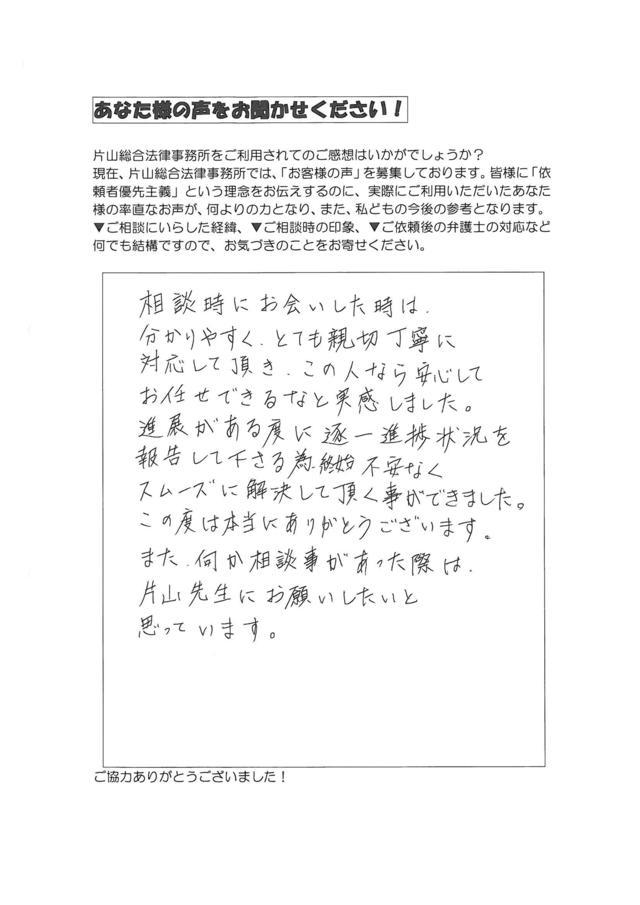 あなた様の声をお聞かせください！
片山総合法律事務所をご利用されてのご感想はいかがでしょうか？
現在、片山総合法律事務所では、「お客様の声」を募集しております。皆様に「依
頼者優先主義」という理念をお伝えするのに、実際にご利用いただいたあなた
様の率直なお声が、何よりの力となり、また、私どもの今後の参考となります。
▼ご相談にいらした経緯、▼ご相談時の印象、▼ご依頼後の弁護士の対応など
何でも結構ですので、お気づきのことをお寄せください。
相談時にお会いした時は、
分かりやすく、とても親切丁寧に
対応して頂き、この人なら安心して
お任せできるなと実感しました。
進展がある度に逐一進捗状況を
報告して下さる為、終始不安なく
スムーズに解決して頂く事ができました。
この度は本当にありがとうございます。
また、何か相談事があった際は、
片山先生にお願いしたいと
思っています。
ご協力ありがとうございました！